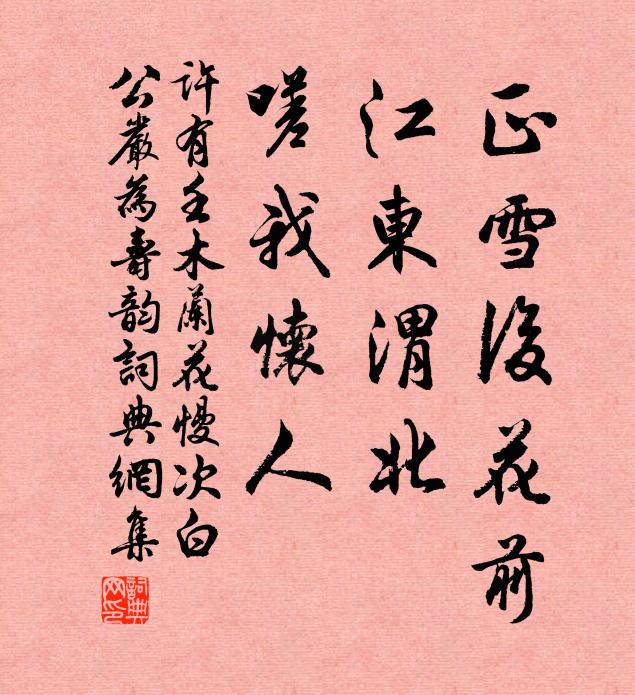 正雪後花前
江東渭北
嗟我懷人
許有壬木蘭花慢次白
公嚴為壽韵詞典網集
詞典
网印